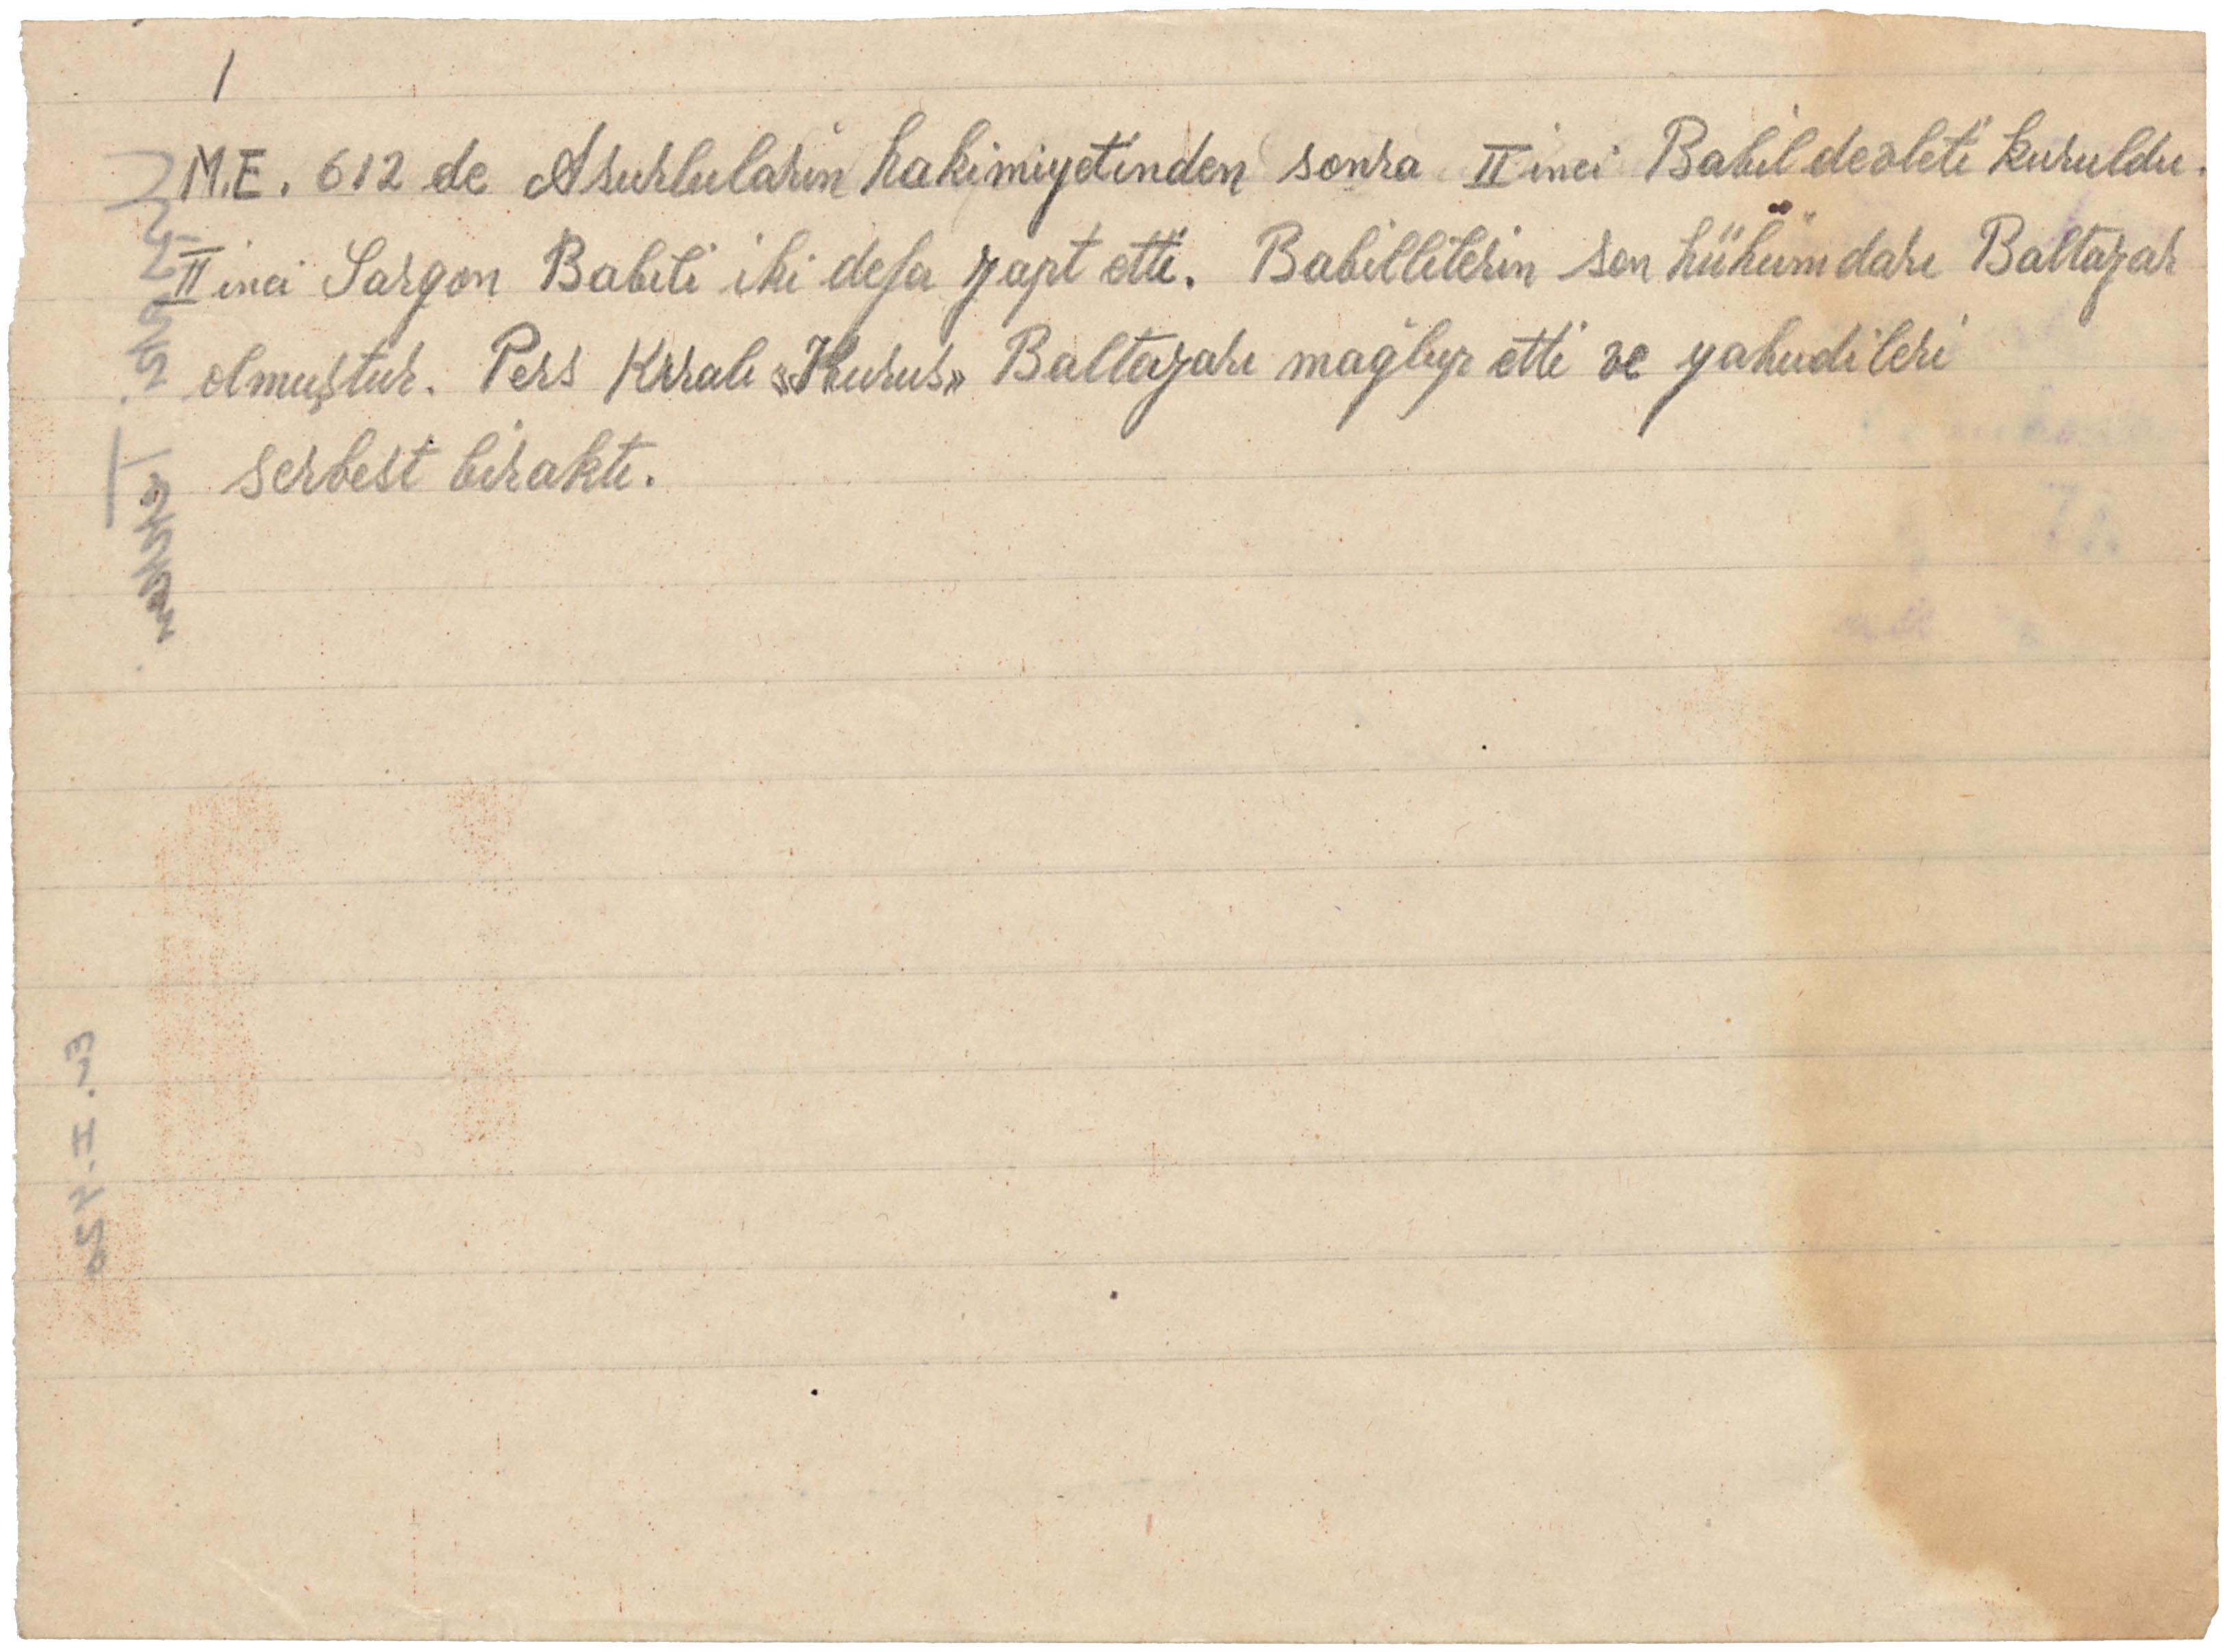 1
M.E. 612 de Asurluların hakimiyetinden sonra II inci Babil devleti kuruldu.
II inci Sargon Babili iki defa zapt etti. Babillilerin son hükümdarı Baltazar
olmuştur. Pers Kıralı «Kurus» Baltazarı mağlup etti ve yahudileri
serbest bıraktı.